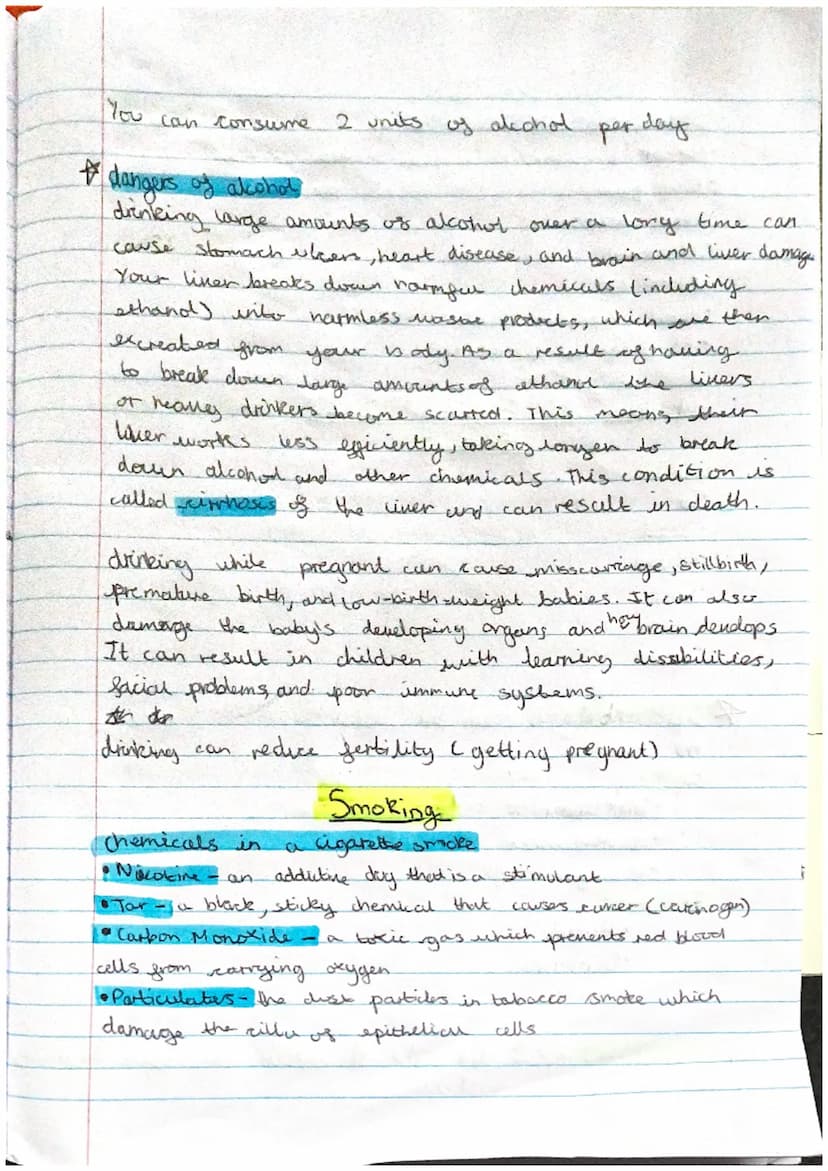 You can consume 2 units of alcohol per day
dangers of alcohol
drinking large amounts of alcohol over a long time can
cause stomach ulcers, heart disease, and brain and liver damage
Your liver breaks down harmful chemicals (including
ethanol) into harmless waste products, which are then
excreated from your body. As a result of having
to break down large amounts of ethanol the livers
of heavey drinkers become scarred. This means their
liver works less efficiently, taking longer to break
down alcohol and other chemicals. This condition is
called cirrhosis of the liver and can result in death.
drinking while pregnant can cause misscarriage, stillbirth,
premature birth, and low-birth-weight babies. It can also
damage the baby's developing organs and how brain develops
It can result in children with learning dissbilities,
facial problems, and poor immune systems.
drinking can reduce fertility (getting pregnant)
Smoking
chemicals in a cigarette smoke
• Nicotine - an addictive drug that is a stimulant
• Tar - a black, sticky chemical that causes cancer (carcinogen)
• Carbon Monoxide - a toxic gas which prevents red blood
cells from carrying oxygen
• Particulates - the dust particles in tobacco smoke which
damage the cilla of epithelial cells